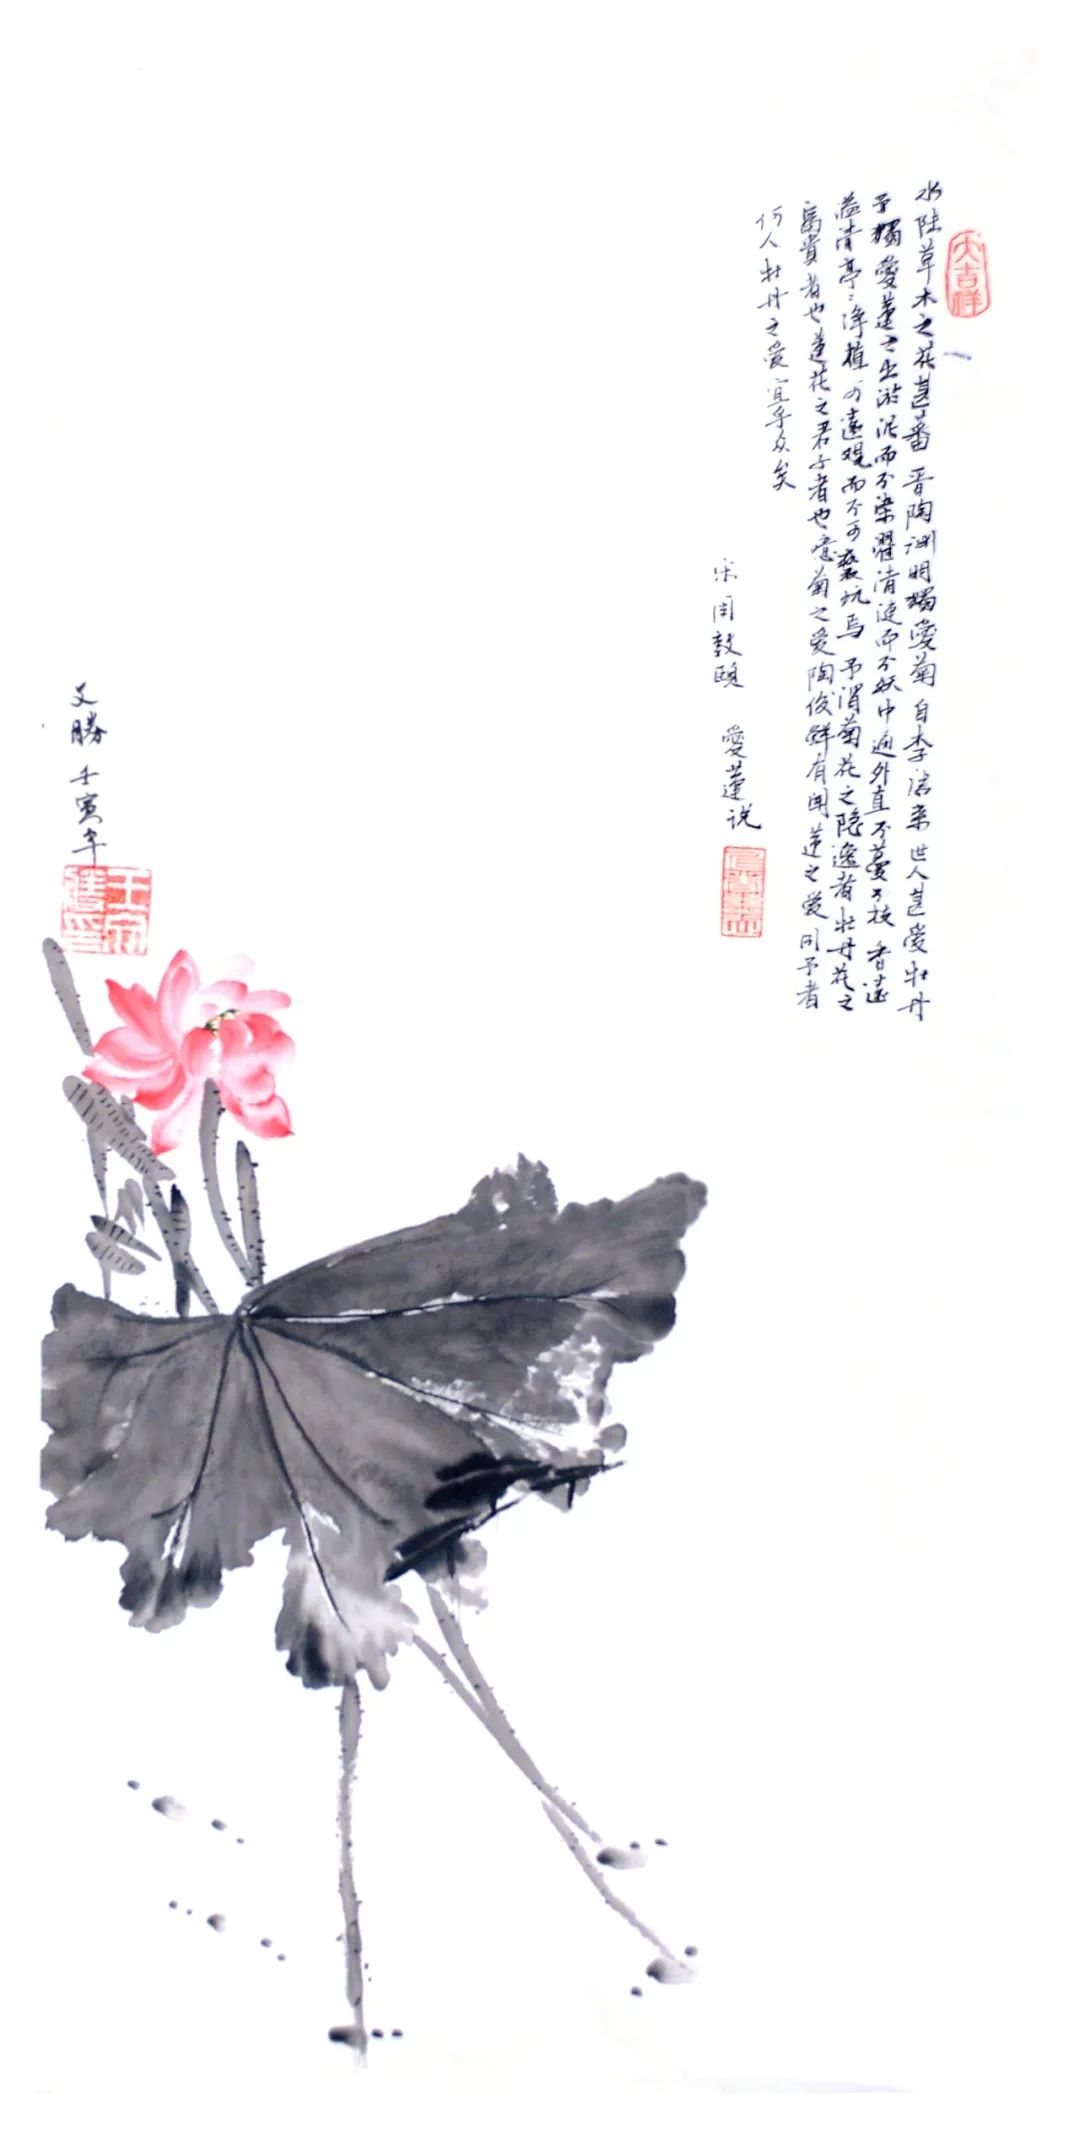 大吉祥
水陆草木之花甚蕃 晋陶渊明獨愛菊 自李唐来世人甚爱牡丹
予獨愛蓮之出淤泥而不染濯清涟而不妖中通外直不蔓不枝 香遠
益清亭〻淨植可遠观而不可亵玩焉 予谓菊花之隐逸者牡丹花之
富貴者也蓮花之君子者也噫菊之爱陶後鲜有闻莲之爱同予者
何人牡丹之爱宜乎众矣
宋周敦颐 愛蓮说
文勝 壬寅年